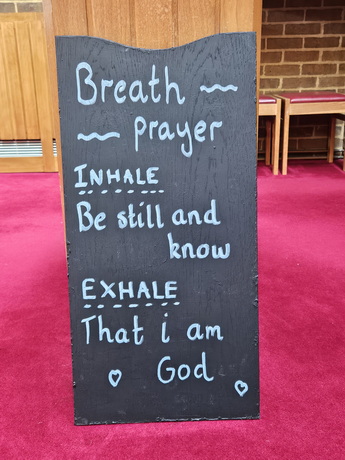 Breath
prayer
INHALE
Be still and
know
EXHALE
That i am
God